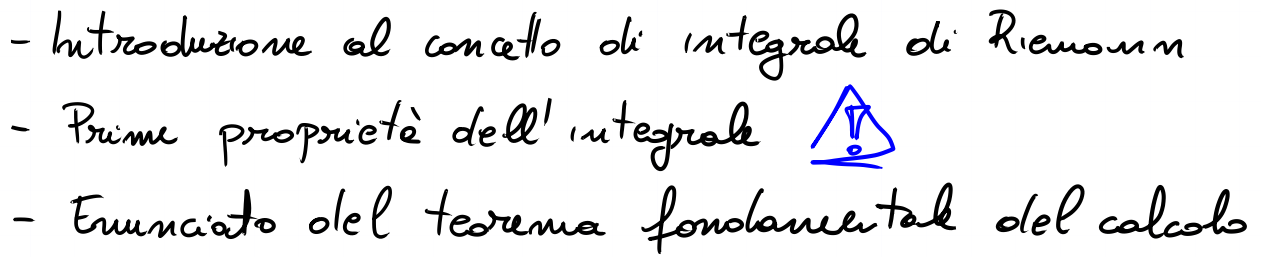 - Introduzione al concetto di integrale di Riemann
- Prime proprietà dell'integrale
- Enunciato del teorema fondamentale del calcolo